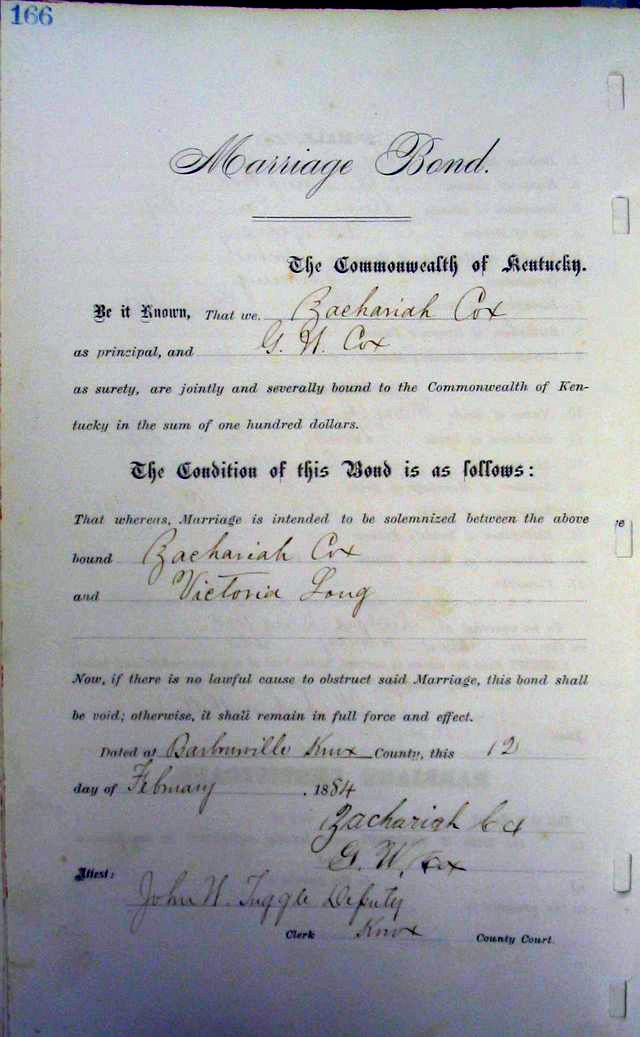 166
Marriage Bond.
The Commonwealth of Kentucky.
Be it Known, That we, Zachariah Cox
as principal, and G. W. Cox
as surety, are jointly and severally bound to the Commonwealth of Ken-
tucky in the sum of one hundred dollars.
The Condition of this Bond is as follows:
That whereas, Marriage is intended to be solemnized between the above
bound Zachariah Cox
and Victoria Long
Now, if there is no lawful cause to obstruct said Marriage, this bond shall
be void; otherwise, it shall remain in full force and effect.
Dated at Barbourville Knox County, this 12
day of February, 1884
Zachariah Cox
G. W. Cox
Attest:
John H. Tuggle Deputy
Clerk Knox County Court.